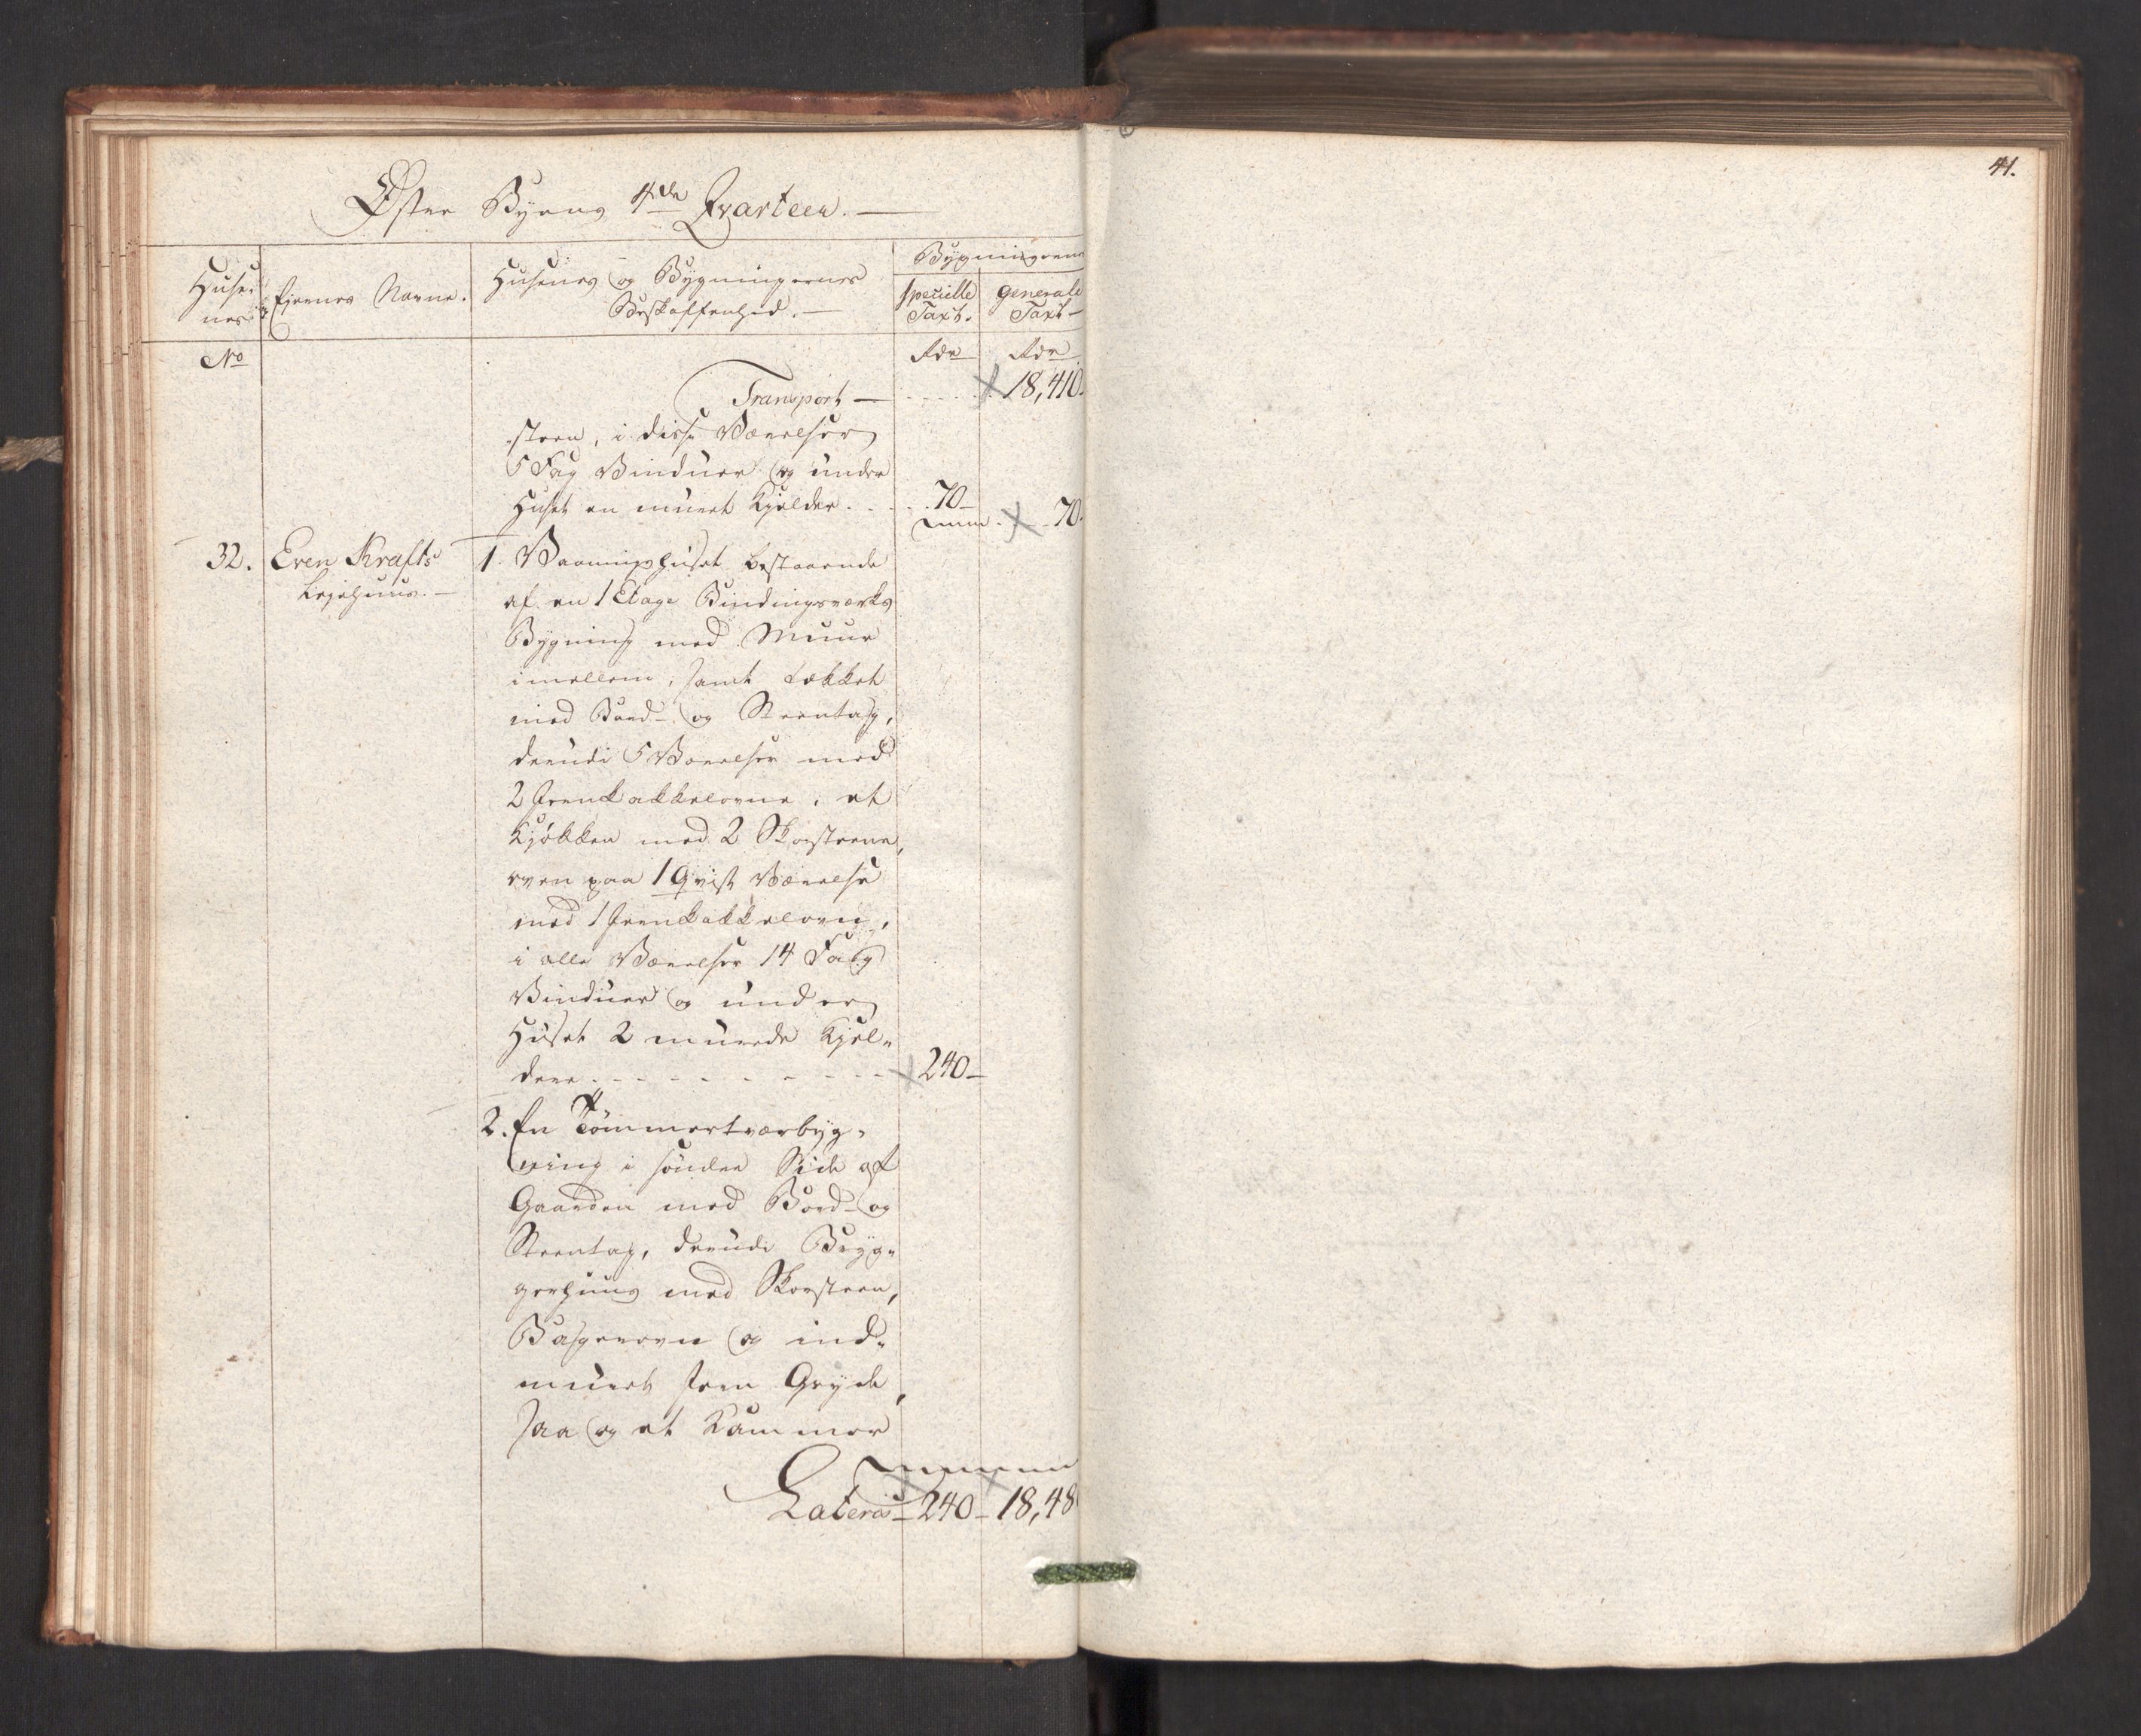 41.
Øster Byens 4de Qvarteer.
Huse- nes
Ejernes Navne.
Husenes og Bygningernes
Beskaffenhed.
Bygningernes
specielle Taxt.
generale Taxt
No
Rdr Rdr
Transport 18,410.
steen, i disse Værelser
5 Fag Vinduer og under
Huset en muret Kjelder. 70 70.
32. Even Krafts 1. Vaaningshuset bestaaende
Lejehuus. af en 1 Etage Bindingsværks
Bygning med Muur
imellem, samt tækket
med Bord- og Steentag,
derudi 5 Værelser med
2 Jernkakkelovne, et
Kjøkken med 2 Skorsteene,
oven paa 1 Qvist Værelse
med 1 Jernkakkelovn,
i alle Værelser 14 Fag
Vinduer og under
Huset 2 murede Kjel-
dere 240
2. En Tømmertværbyg-
ning i søndre Side af
Gaarden med Bord- og
Steentag, derudi Bryg-
gerhuus med Skorsteen,
Bagerovn og ind-
muret Jern Gryde,
saa og et Kammer
Lateris 240 18,48